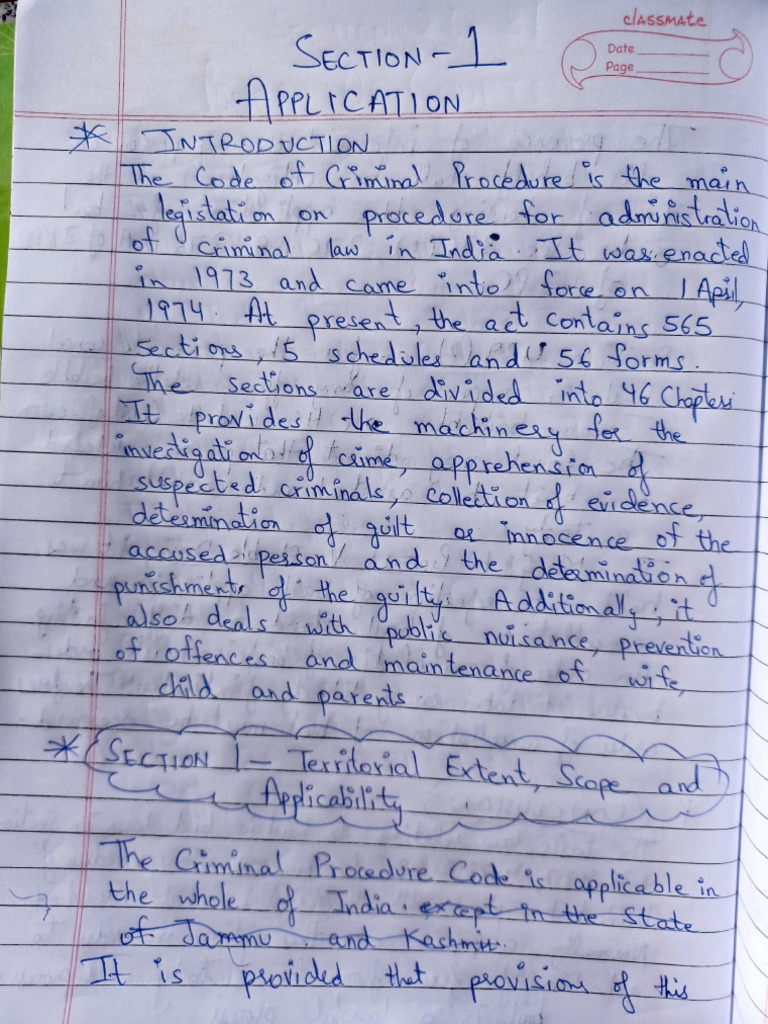 classmate
Date
Page
SECTION-1
APPLICATION
* INTRODUCTION
The Code of Criminal Procedure is the main
legistation on procedure for administration
of criminal law in India. It was enacted
in 1973 and came into force on 1 April,
1974. At present, the act contains 565
sections, 5 schedules and 56 forms.
The sections are divided into 46 Chapters
It provides the machinery for the
investigation of crime, apprehension of
suspected criminals, collection of evidence,
determination of guilt or innocence of the
accused person and the determination of
punishment of the guilty. Additionally, it
also deals with public nuisance, prevention
of offences and maintenance of wife,
child and parents.
* SECTION 1 - Territorial Extent, Scope and
Applicability
The Criminal Procedure Code is applicable in
the whole of India. except in the State
of Jammu and Kashmir.
It is provided that provisions of this